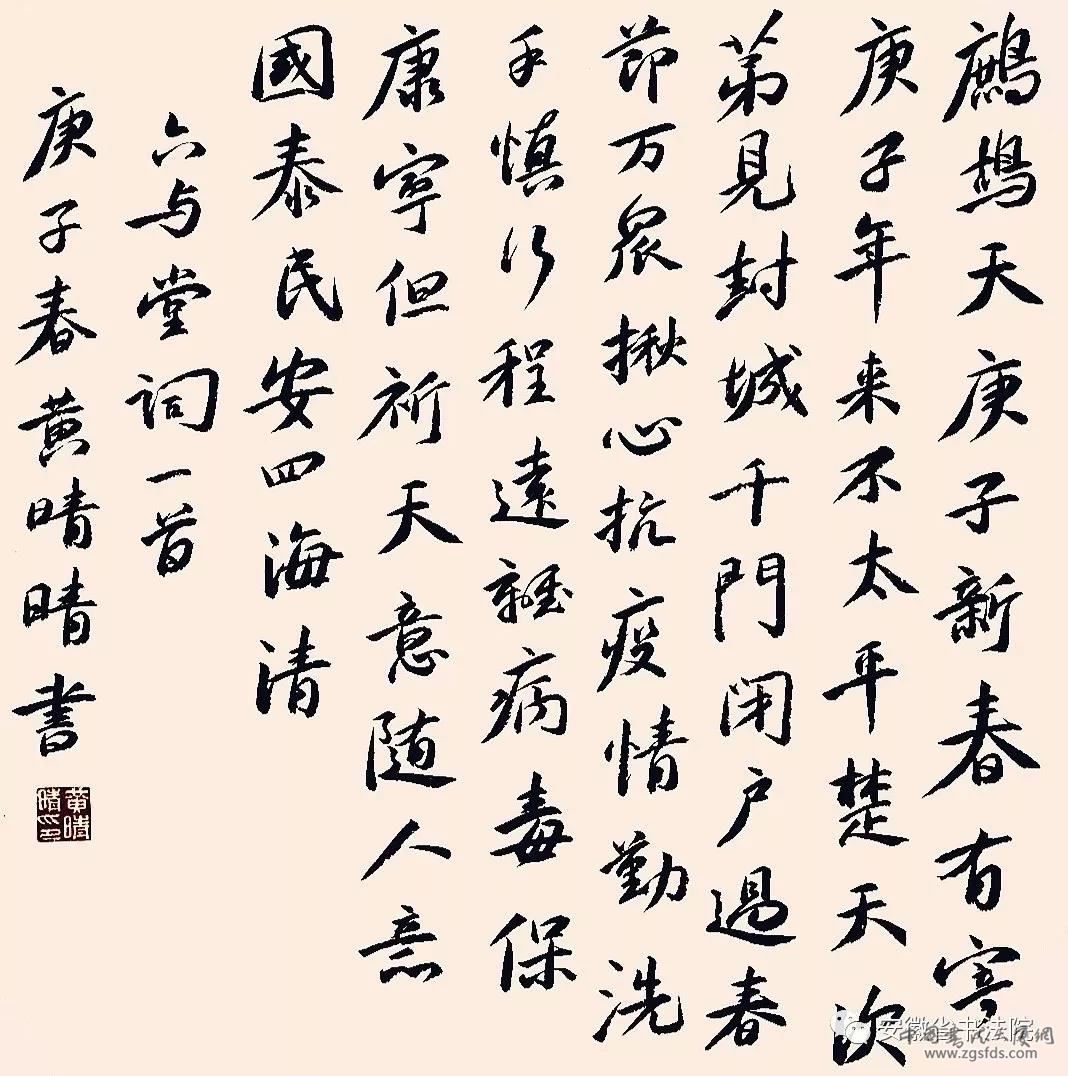 鷓鴣天庚子新春有寄
庚子年来不太平楚天次
第見封城千門闭户過春
節万衆揪心抗疫情勤洗
手慎行程遠離病毒保
康寧但祈天意随人意
國泰民安四海清
六与堂詞一首
庚子春黄晴晴書
安徽省书法院
www.zgsfds.com